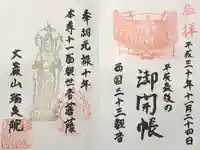 奉拝
平成三十年十一月二十四日
平成最後の
御開帳
西国三十三観音
奉開元禄十年
本尊十一面観世音菩薩
大巌山